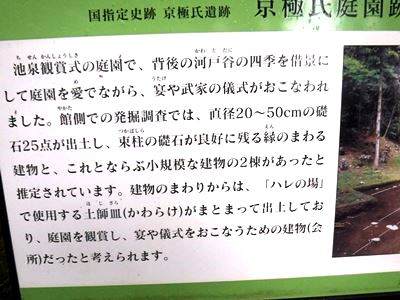 国指定史跡 京極氏遺跡 京極氏庭園跡
ち せんかんしょうしき
池泉観賞式の庭園で、背後の河戸谷の四季を借景に
かわ と だに
して庭園を愛でながら、宴や武家の儀式がおこなわれ
め
うたげ
ました。館側での発掘調査では、直径20～50cmの礎
やかた
石25点が出土し、束柱の礎石が良好に残る縁のまわる
つかばしら
えん
建物と、これとならぶ小規模な建物の2棟があったと
推定されています。建物のまわりからは、「ハレの場」
で使用する土師皿(かわらけ)がまとまって出土してお
は じ ざら
り、庭園を観賞し、宴や儀式をおこなうための建物(会
所)だったと考えられます。